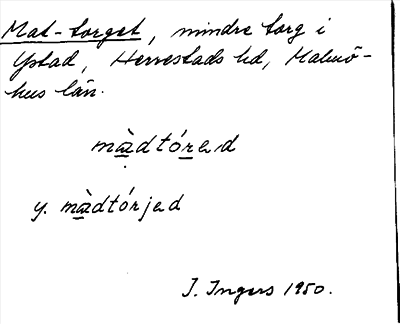 Mat-torget, mindre torg i
Ystad, Herrestads hd, Malmö-
hus län.
màdtóred
y. màdtórjed
I. Ingers 1950.